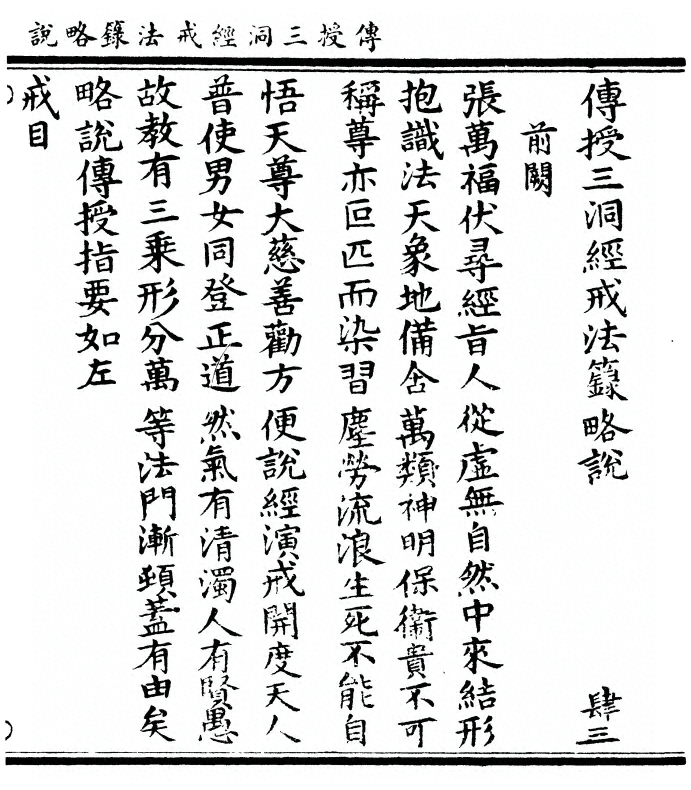 傳授三洞經戒法籙略說
傳授三洞經戒法籙略說 肆三
前闕
張萬福伏尋經旨人從虛無自然中來結形
抱識法天象地備含萬類神明保衛貴不可
稱尊亦叵匹而染習塵勞流浪生死不能自
悟天尊大慈善勸方便說經演戒開度天人
普使男女同登正道然氣有清濁人有賢愚
故教有三乘形分萬等法門漸頓蓋有由矣
略說傳授指要如左
戒目